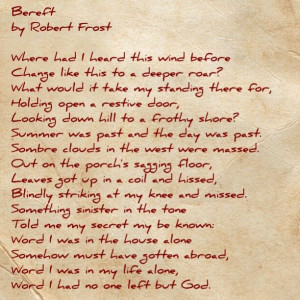 Bereft
by Robert Frost
Where had I heard this wind before
Change like this to a deeper roar?
What would it take my standing there for,
Holding open a restive door,
Looking down hill to a frothy shore?
Summer was past and the day was past.
Sombre clouds in the west were massed.
Out on the porch's sagging floor,
Leaves got up in a coil and hissed,
Blindly striking at my knee and missed.
Something sinister in the tone
Told me my secret my be known:
Word I was in the house alone
Somehow must have gotten abroad,
Word I was in my life alone,
Word I had no one left but God.